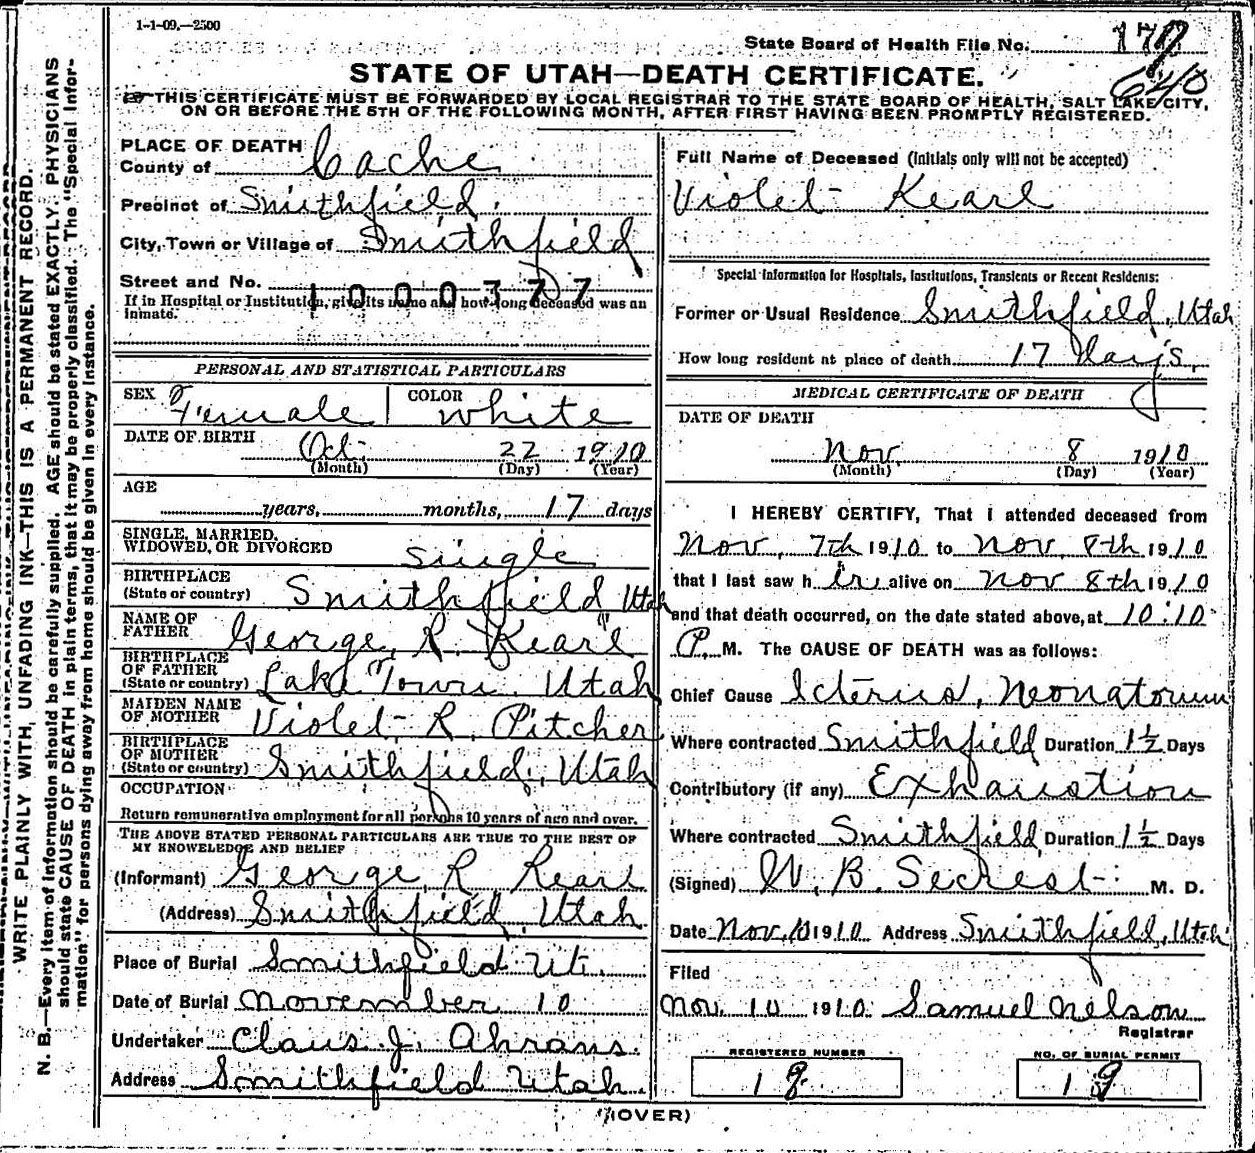 1-1-09.—2500
State Board of Health File No. 170
640
STATE OF UTAH—DEATH CERTIFICATE.
THIS CERTIFICATE MUST BE FORWARDED BY LOCAL REGISTRAR TO THE STATE BOARD OF HEALTH, SALT LAKE CITY,
ON OR BEFORE THE 5TH OF THE FOLLOWING MONTH, AFTER FIRST HAVING BEEN PROMPTLY REGISTERED.
WRITE PLAINLY WITH, UNFADING INK—THIS IS A PERMANENT RECORD.
N. B.—Every item of information should be carefully supplied. AGE should be stated EXACTLY. PHYSICIANS
should state CAUSE OF DEATH in plain terms, that it may be properly classified. The "Special Infor-
mation" for persons dying away from home should be given in every instance.
PLACE OF DEATH
County of Cache
Precinct of Smithfield
City, Town or Village of Smithfield
Street and No.
1000377
If in Hospital or Institution, give its name and how long deceased was an
inmate.
PERSONAL AND STATISTICAL PARTICULARS
SEX Female COLOR White
DATE OF BIRTH Oct. 22 1910
(Month) (Day) (Year)
AGE
years, months, 17 days
SINGLE, MARRIED,
WIDOWED, OR DIVORCED single
BIRTHPLACE
(State or country) Smithfield Utah
NAME OF
FATHER George R. Kearl
BIRTHPLACE
OF FATHER
(State or country) Lake Town. Utah
MAIDEN NAME
OF MOTHER Violet R. Pitcher
BIRTHPLACE
OF MOTHER
(State or country) Smithfield, Utah
OCCUPATION
Return remunerative employment for all persons 10 years of age and over.
THE ABOVE STATED PERSONAL PARTICULARS ARE TRUE TO THE BEST OF
MY KNOWELEDGE AND BELIEF
(Informant) George R Kearl
(Address) Smithfield, Utah
Place of Burial Smithfield Ut.
Date of Burial November 10
Undertaker Claus J. Ahrans.
Address Smithfield Utah.
Full Name of Deceased (Initials only will not be accepted)
Violet Kearl
Special Information for Hospitals, Institutions, Transients or Recent Residents:
Former or Usual Residence Smithfield, Utah
How long resident at place of death 17 Days,
MEDICAL CERTIFICATE OF DEATH
DATE OF DEATH
Nov. 8 1910
(Month) (Day) (Year)
I HEREBY CERTIFY, That I attended deceased from
Nov, 7th 1910 to Nov. 8th 1910
that I last saw h er alive on Nov 8th 1910
and that death occurred, on the date stated above, at 10:10
P. M. The CAUSE OF DEATH was as follows:
Chief Cause Icterus, Neonatorum
Where contracted Smithfield Duration 1½ Days
Contributory (if any) Exhaustion
Where contracted Smithfield Duration 1½ Days
(Signed) W. B. Secrest M. D.
Date Nov. 10 1910 Address Smithfield, Utah
Filed
Nov. 10 1910. Samuel Nelson
Registrar
REGISTERED NUMBER
NO. OF BURIAL PERMIT
(OVER)